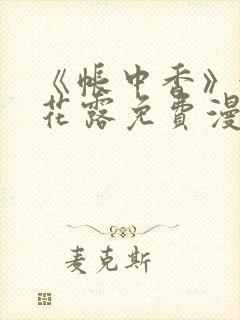 《帐中香》
花露免费漫
麦克斯